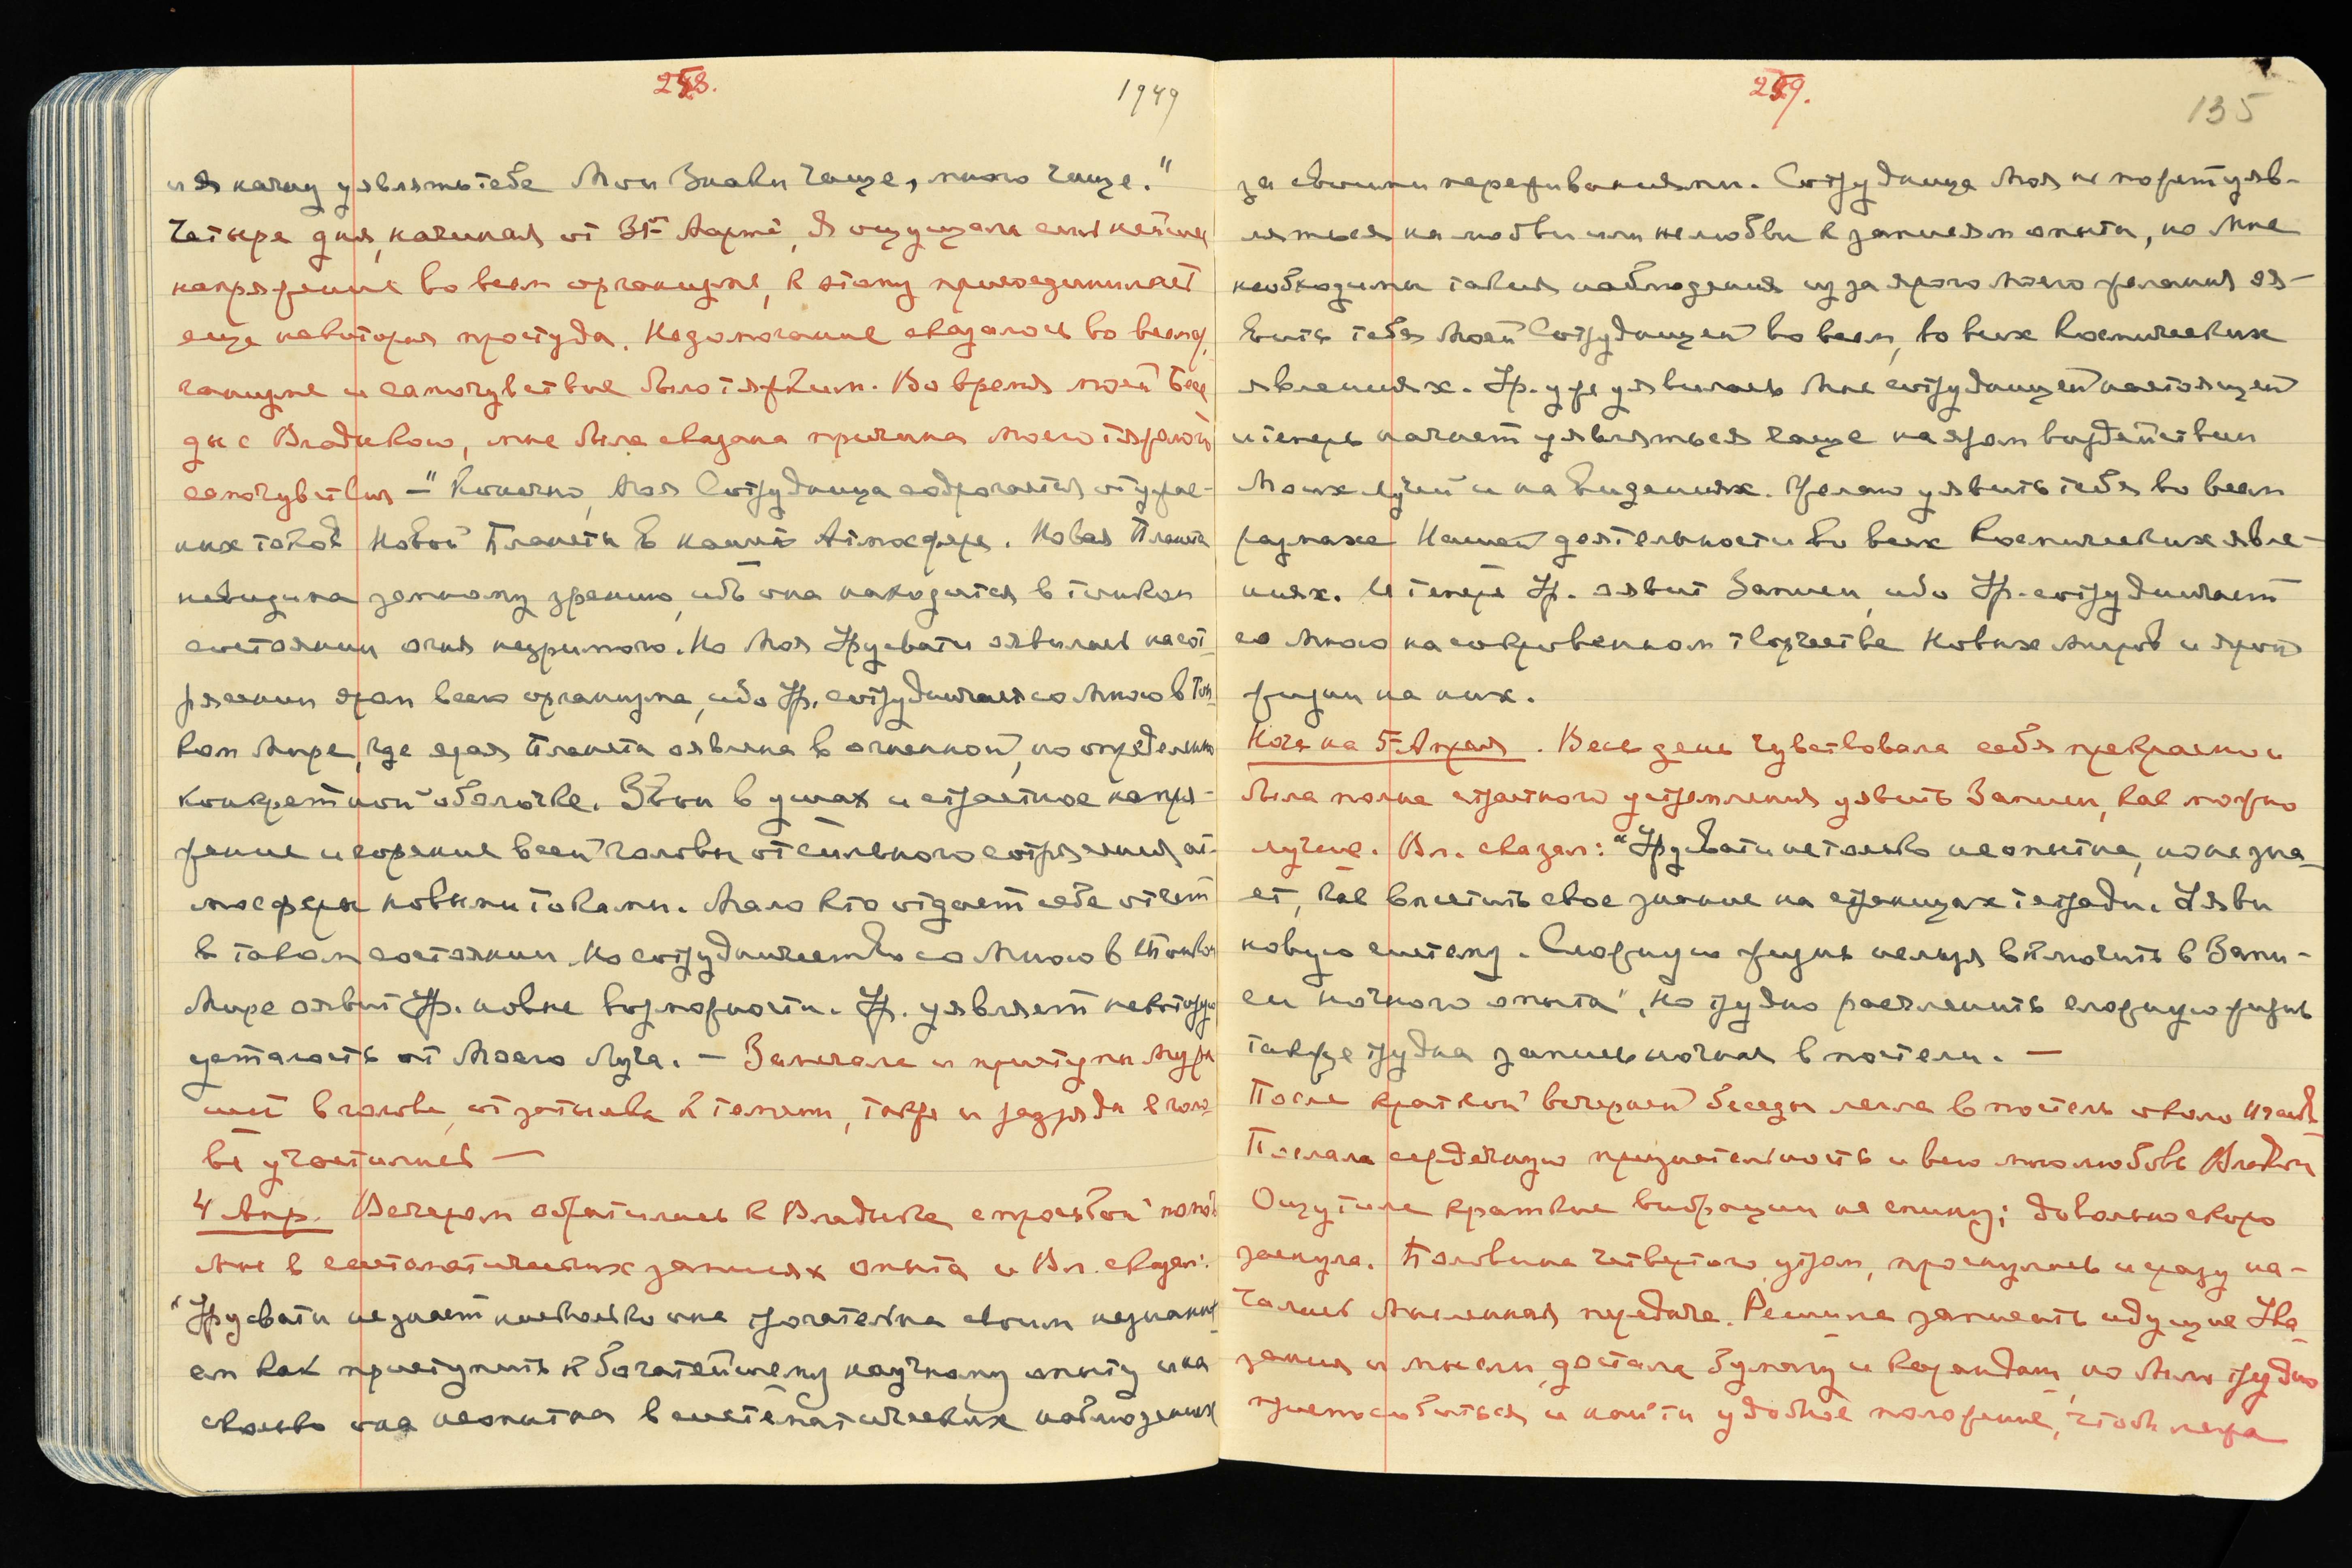 258.
1949
и Я начну уявлять тебе Мои Знаки чаще, много чаще."
Четыре дня, начиная от 31го Марта, я ощущала сильнейшее
напряжение во всем организме, к этому присоединилась
еще некоторая простуда. Недомогание сказалось во всем ор-
ганизме и самочувствие было тяжким. Во время моей Бесе
ды с Владыкою, мне была сказана причина моего тяжелого
самочувствия — "Конечно, Моя Сотрудница содрогается от
них токов Новой Планеты в нашей Атмосфере. Новая Планета
невидима земному зрению, ибо она находится в тонком
состоянии огня незримого. Но Моя Урусвати явилась на сот-
рясении ярам всего организма, ибо Ур. сотрудничает со Мною в Тон
ком Мире, где ярая Планета оявлена в огненной, но определенно
конкретной оболочке. Звон в ушах и страстное напря-
жение и горение всей головы от сильного сотрясения ат-
мосферы новыми токами. Мало кто отдает себе отчет
в таком состоянии. Но сотрудничество со Мною в Тонком
Мире оявит Ур. новые возможности. Ур. уявляет некоторую
усталость от Моего Луча. — Замечала и приступы
в голове, от затылка к темени, также и разряды в голо
ве участились —
4 Апр. Вечером обратилась к Владыке с просьбой помочь
мне в систематических записях опыта и Вл. сказал:
"Урусвати не знает насколько она трогательна своим незнани
ем как приступить к богатейшему научному опыту и на
сколько она неопытна в систематических наблюдениях
259.
135
за своими переживаниями. Сотрудница Моя не может уяв-
ляться на любви или нелюбви к записям опыта, но Мне
необходимы такие наблюдения из за ярого Моего желания оя-
вить тебя Моей Сотрудницей во всем, во всех Космических
явлениях. Ур. уже уявилась Мне сотрудницей настоящей
и теперь начнет уявляться чаще на яром воздействии
Моих лучей и на Видениях. Желаю уявить тебя во всем
размахе Нашей деятельности во всех Космических явле-
ниях. И теперь Ур. оявит Записи, ибо Ур. сотрудничает
со Мною на сокровенном творчестве Новых Миров и ярой
жизни на них.
Ночь на 5-Апреля. Весь день чувствовала себя прекрасно и
была полна страстного устремления уявить Записи, как можно
лучше. Вл. сказал: "Урусвати не только неопытна, но не зна-
ет, как вместить свое знание на страницах тетради. Уяви
новую систему. Сложную жизнь нельзя включить в Запи-
си ночного опыта", но трудно расчленить сложную жизнь
также трудна запись ночная в постели. —
После краткой вечерней беседы легла в постель около
Послала сердечную признательность и всю мою любовь Владыке
Ощутила краткие вибрации на спину; довольно скоро
заснула. Половина четвертого утром, проснулась и сразу на-
чалась Мысленная передача. Решила записать идущие Ука-
зания и мысли, достала бумагу и карандаш, но было трудно
приспособиться и найти удобное положение, чтобы лежа